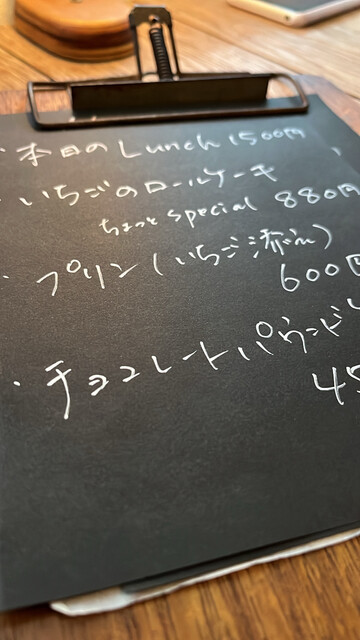 ・本日のLunch 1500円
・いちごのロールケーキ
ちょっとspecial 880円
・プリン(いちご添え)
600円
・チョコレートパウンド
45